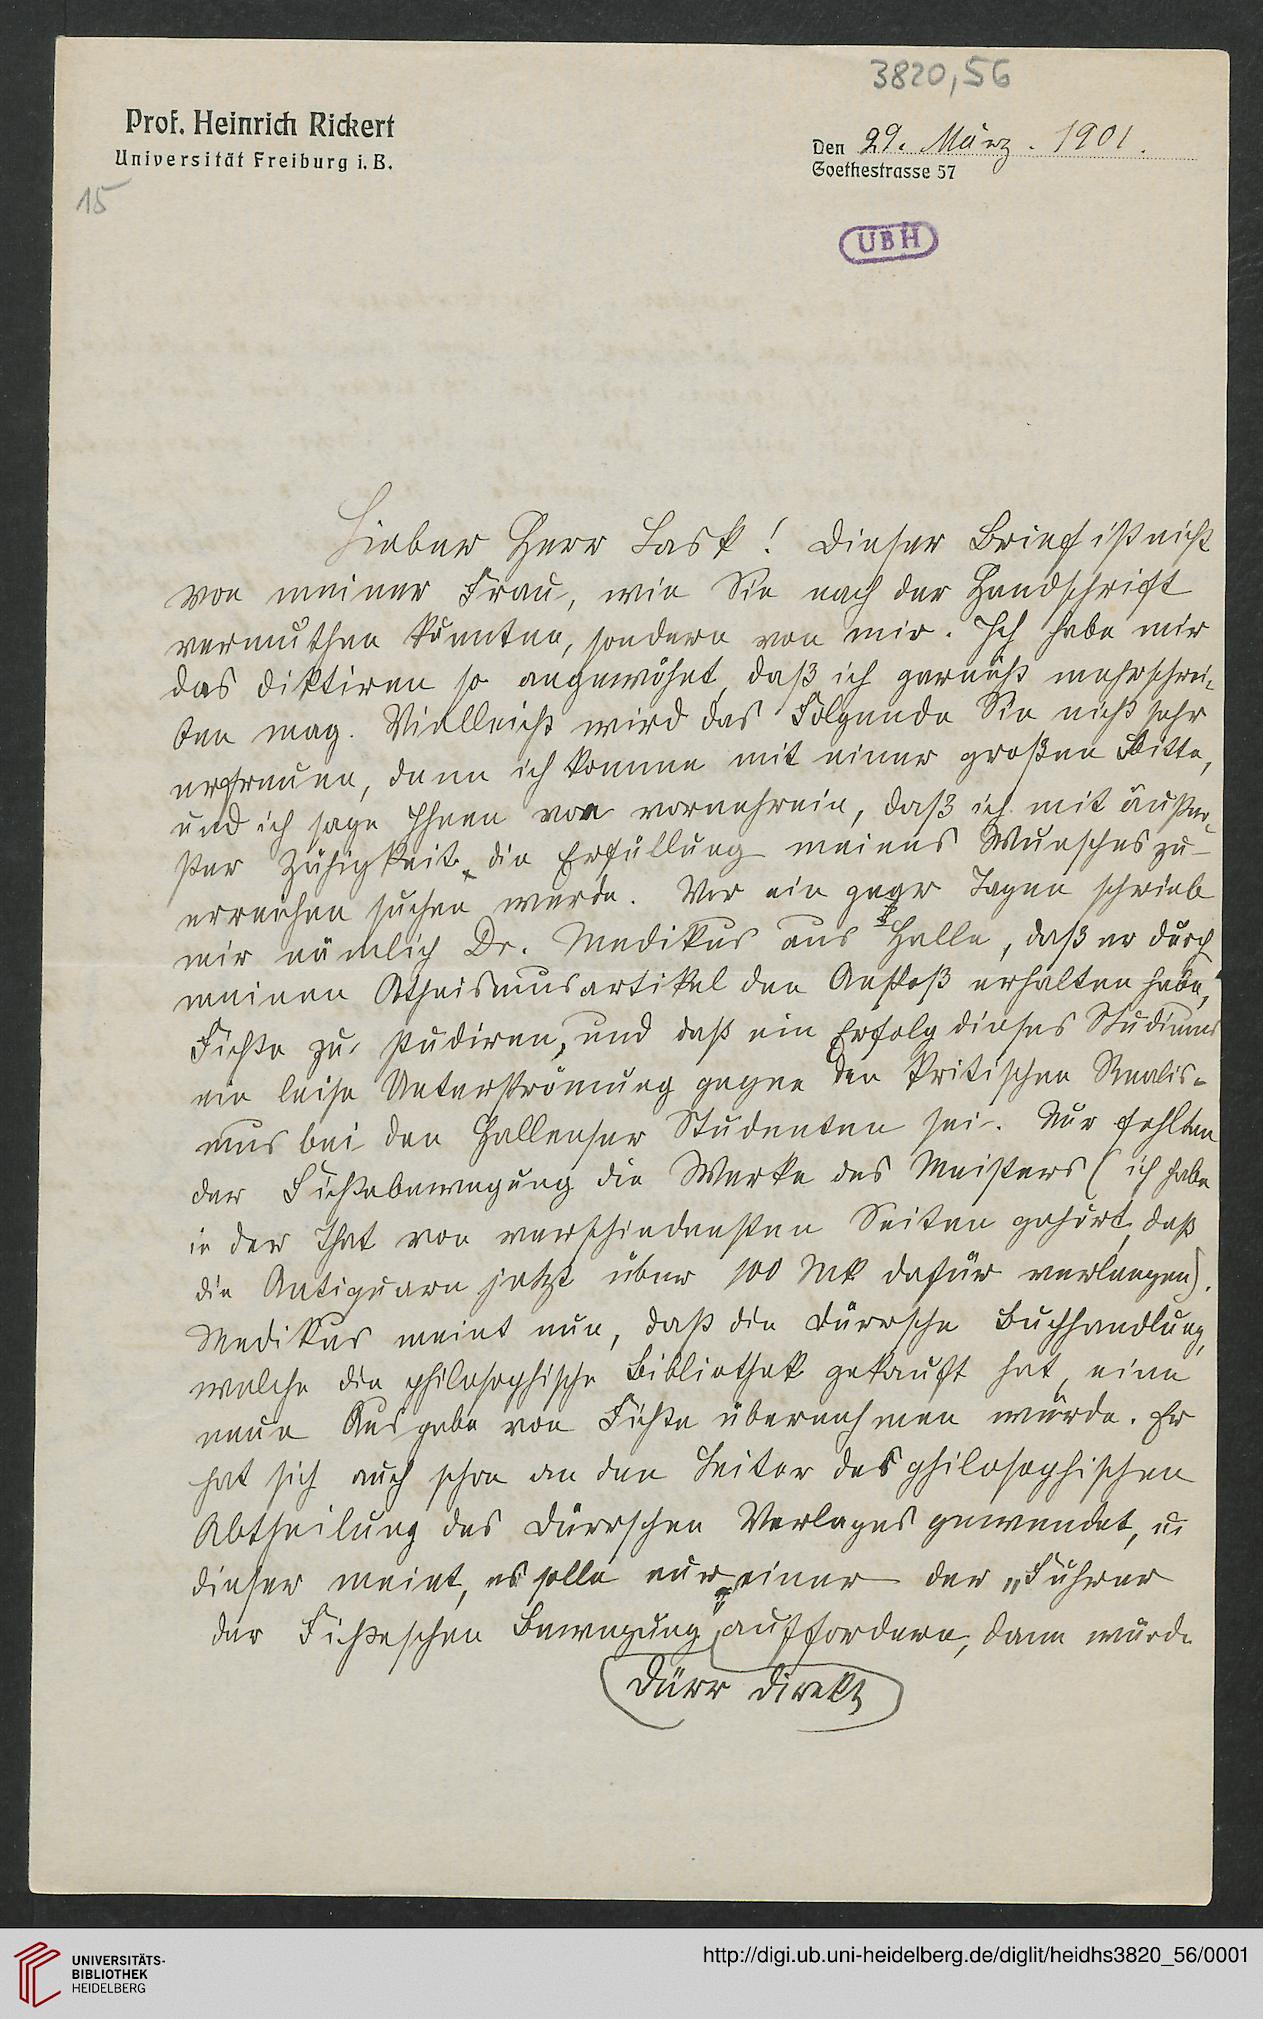 3820,56
Prof. Heinrich Rickert
Universität Freiburg i. B.
Den 29. März. 1901.
Goethestrasse 57
15
UBH
Lieber Herr Lask! Dieser Brief ist nicht
von meiner Frau, wie Sie nach der Handschrift
vermuthen könnten, sondern von mir. Ich habe mir
das Diktiren so angewöhnt, daß ich garnicht mehr schrei-
ben mag. Vielleicht wird das Folgende Sie nicht sehr
erfreuen, denn ich komme mit einer großen Bitte,
und ich sage Ihnen von vornehrein, daß ich mit äußer-
ster Zähigkeit die Erfüllung meines Wunsches zu
erreichen suchen werde. Vor ein paar Tagen schrieb
mir nämlich Dr. Medikus aus Halle, daß er durch
meinen Atheismusartikel den Anstoß erhalten habe,
Fichte zu studiren, und daß ein Erfolg dieses Studiums
ein leise Unterströmung gegen den kritischen Realis-
mus bei den Hallenser Studenten sei. Nur fehlten
der Fichtebewegung die Werke des Meisters (ich habe
in der That von verschiedensten Seiten gehört, daß
die Antiquare jetzt über 100 Mk dafür verlangen).
Medikus meint nun, daß die Dürrsche Buchhandlung,
welche die philosophische Bibliothek gekauft hat, eine
neue Ausgabe von Fichte übernehmen würde. Er
hat sich auch schon an den Leiter des philosophischen
Abtheilung des Dürrschen Verlages gewendet, u.
dieser meint, es solle nur einer der „Führer
der Fichteschen Bewegung" auffordern, dann würde
Dürr direkt
UNIVERSITÄTS-
BIBLIOTHEK
HEIDELBERG
http://digi.ub.uni-heidelberg.de/diglit/heidhs3820_56/0001